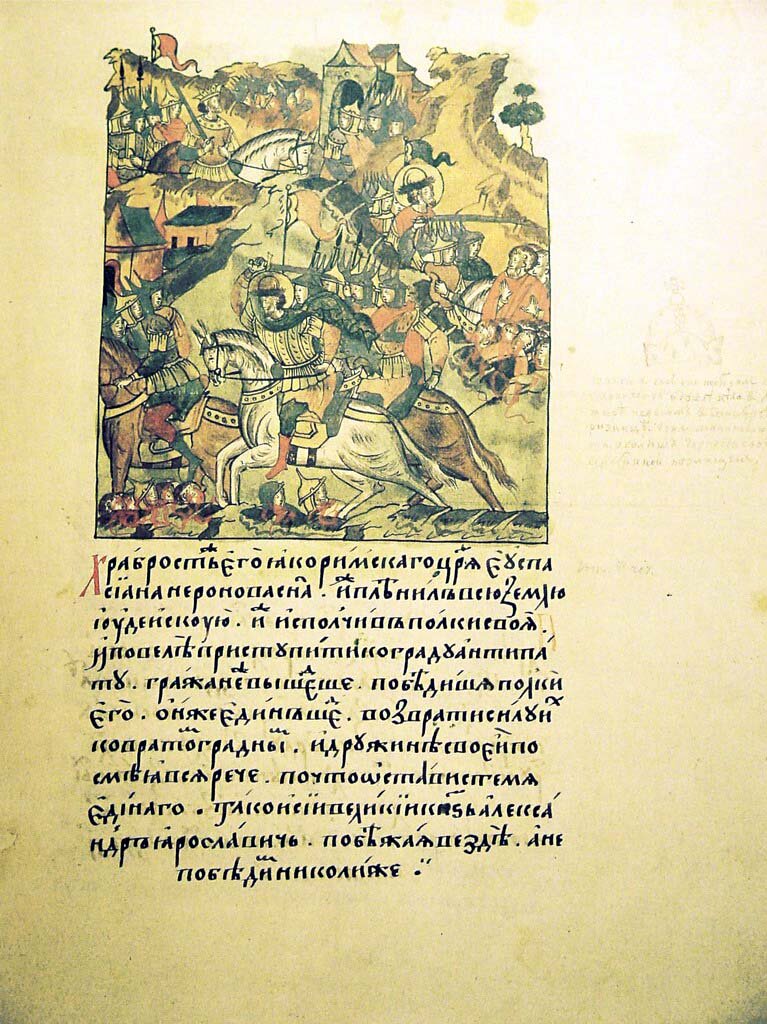 Храбрость его яко римскаго црѧ еуспа
сіана неронова сна . иплѣнилъ всю землю
іоудейскоую . и исполчивъ полки своѧ .
и повелѣ приступити ко граду антипа
ту . гражане вышедше . побѣдиша полки
его . онже единъ бѣ . возврати силу их
ко вратом градным . и дружинѣ своей по
смѣѧвсѧ рече . почто ѡстависте мѧ
единаго . такои сіи великіи кнѕь алекса
ндръ ꙗрославичь . побѣжаѧ вездѣ . а не
побѣдим николиже .